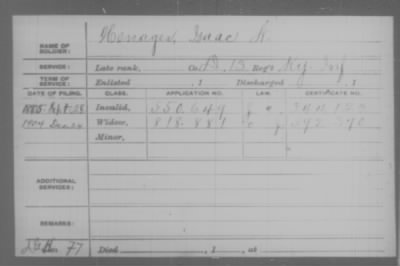 NAME OF SOLDIER: Menager, Isaac N.
SERVICE: Late rank, Co. D, 13 Reg't Ky. Inf
TERM OF SERVICE: Enlisted , 1 Discharged , 1
DATE OF FILING. CLASS. APPLICATION NO. LAW. CERTIFICATE NO.
1885 Sept 28 Invalid, 550.649
1904 Widow, 818.889 592.590
Minor,
ADDITIONAL SERVICES:
REMARKS:
77 Died , 1 , at